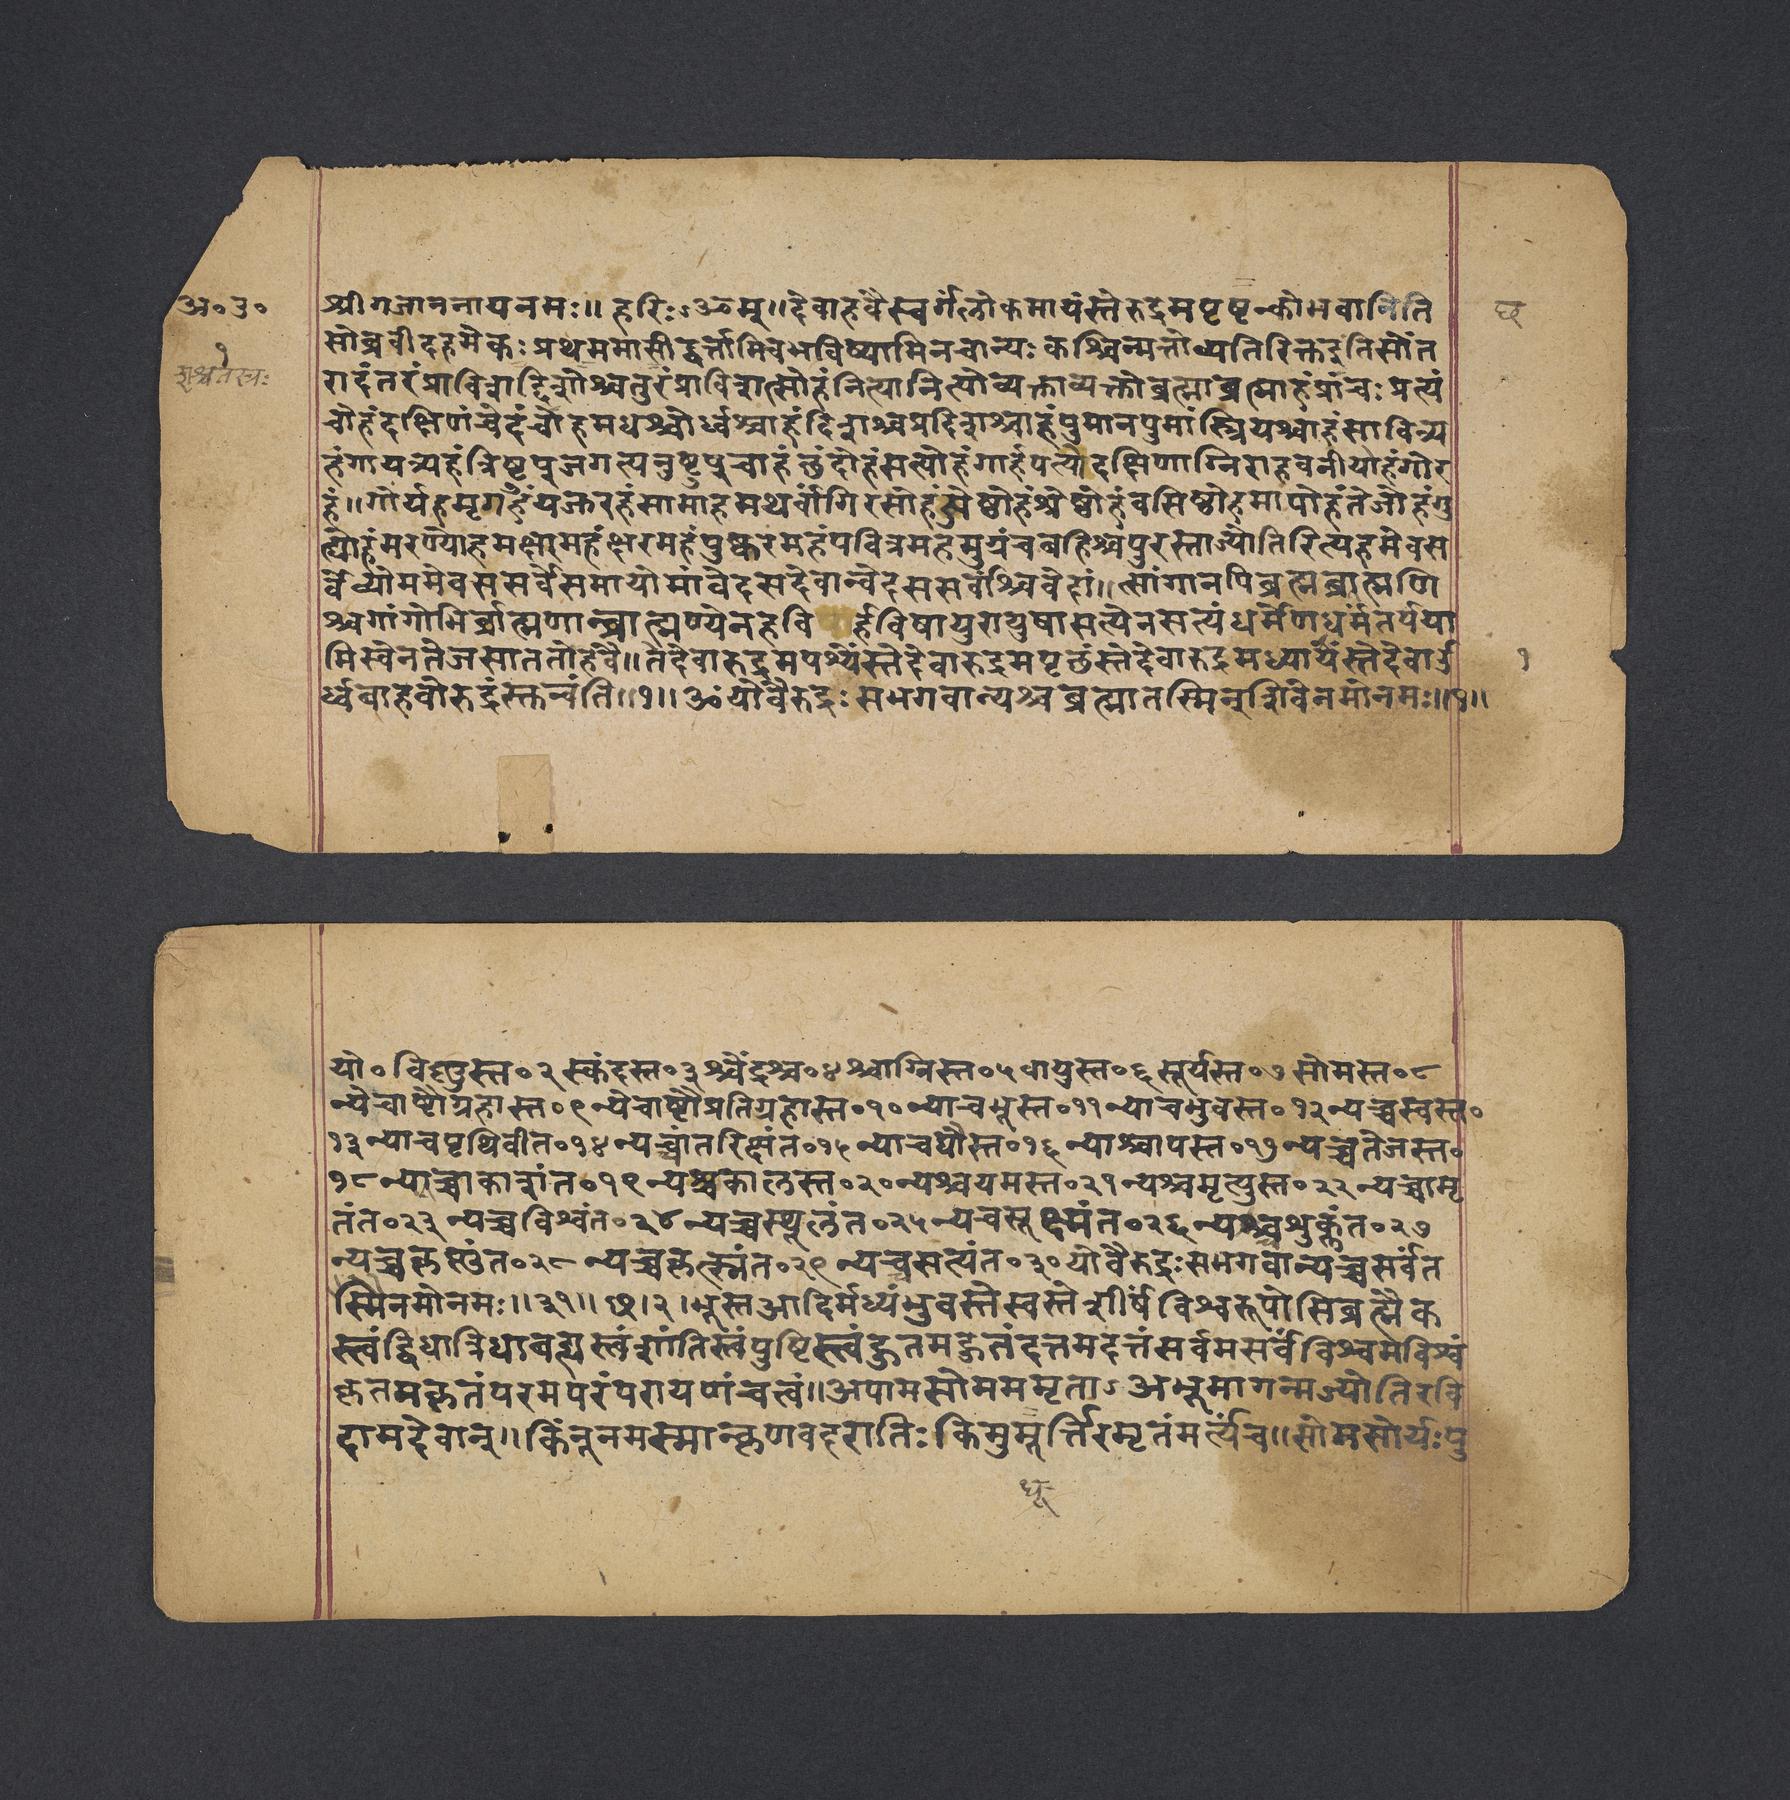 अ॰उ॰
श्रीगजाननायनमः॥ हरिःऽॐम्॥देवाहवैस्वर्गंलोकमायंस्तेरुद्रमपृछन्कोभवानिति
सोब्रवीदहमेकः प्रथममासीद्वर्त्तामिचभविष्यामिनचान्यः कश्चिन्मत्तोव्यतिरिक्तइतिसोंत
रादंतरंप्राविशद्दिशोश्चतुरंप्राविशत्सोहंनित्यानित्योव्यक्ताव्यक्तोब्रह्माब्रह्माहंप्रांचः प्रत्यं
चोहंदक्षिणंचेदंचोहमधश्चोर्ध्वश्चाहंदिशश्चप्रदिशश्चाहंपुमानपुमांस्त्रियश्चाहंसावित्र्य
हंगायत्र्यहंत्रिष्टुप्जगत्यनुष्टुप्चाहंछंदोहंसत्योहंगार्हपत्योदक्षिणाग्निराहवनीयोहंगौर
हं॥गौर्यहमृगहंयजुरहंसामाहमथर्वांगिरसोहंज्येष्ठोहंश्रेष्ठोहंवसिष्ठोहमापोहंतेजोहंगु
ह्योहंमरण्योहमक्षरमहंक्षरमहंपुष्करमहंपवित्रमहमुग्रंचबहिश्चपुरस्ताज्ज्योतिरित्यहमेवस
र्वेव्योममेवससर्वेसमायोमांवेदसदेवान्वेदससर्वंश्चिवेदां॥त्सांगानपिब्रह्मब्राह्मणि
श्चगांगोभिर्ब्राह्मणान्ब्राह्मण्येनहवि र्हविषायुरायुषासत्येनसत्यंधर्मेणधर्मंतर्पया
मिस्वेनतेजसाततोहवै॥तेदेवारुद्रमपश्यंस्तेदेवारुद्रमपृछंस्तेदेवारुद्रमध्यायंस्तेदेवाऊ
र्ध्वबाहवोरुद्रंस्तुन्वंति॥१॥ॐयोवैरुद्रः सभगवान्यश्चब्रह्मातस्मिन्शिवेनमोनमः॥१॥
१
यो॰विष्णुस्त॰२स्कंदस्त॰३श्चेंद्रश्च॰४श्चाग्निस्त॰५वायुस्त॰६सूर्यस्त॰७सोमस्त॰८
न्येचाष्टौग्रहास्त॰९न्येचाष्टौप्रतिग्रहास्त॰१०न्याचभूस्त॰११न्याचभुवस्त॰१२न्यच्चस्वस्त॰
१३न्याचपृथिवीत॰१४न्यच्चांतरिक्षंत॰१५न्याचद्यौस्त॰१६न्याश्चापस्त॰१७न्यच्चतेजस्त॰
१८न्याच्चाकाशंत॰१९न्यश्चकालस्त॰२०न्यश्चयमस्त॰२१न्यश्चमृत्युस्त॰२२न्यच्चामृ
तंत॰२३न्यच्चविश्वंत॰२४न्यच्चस्थूलंत॰२५न्यचसूक्ष्मंत॰२६न्यच्चशुक्लंत॰२७
न्यच्चकृष्णंत॰२८न्यच्चकृत्स्नंत॰२९न्यच्चसत्यंत॰३०योवैरुद्रःसभगवान्यच्चसर्वंत
स्मैनमोनमः॥३१॥७२।२।भूस्तआदिर्मध्यंभुवस्तेस्वस्तेशीर्षंविश्वरूपोसिब्रह्मैक
स्त्वंद्विधात्रिधाबद्धस्त्वंशांतिस्त्वंपुष्टिस्त्वंहुतमहुतंदत्तमदत्तंसर्वमसर्वंविश्वमविश्वं
कृतमकृतंपरमपरंपरायणंचत्वं॥अपामसोमममृताऽअभूमागन्मज्योतिरवि
दामदेवान्॥किंनूनमस्मान्कृणवदरातिः किमुमूर्त्तिरमृतंमर्त्यंच॥सोमसोर्यःपु